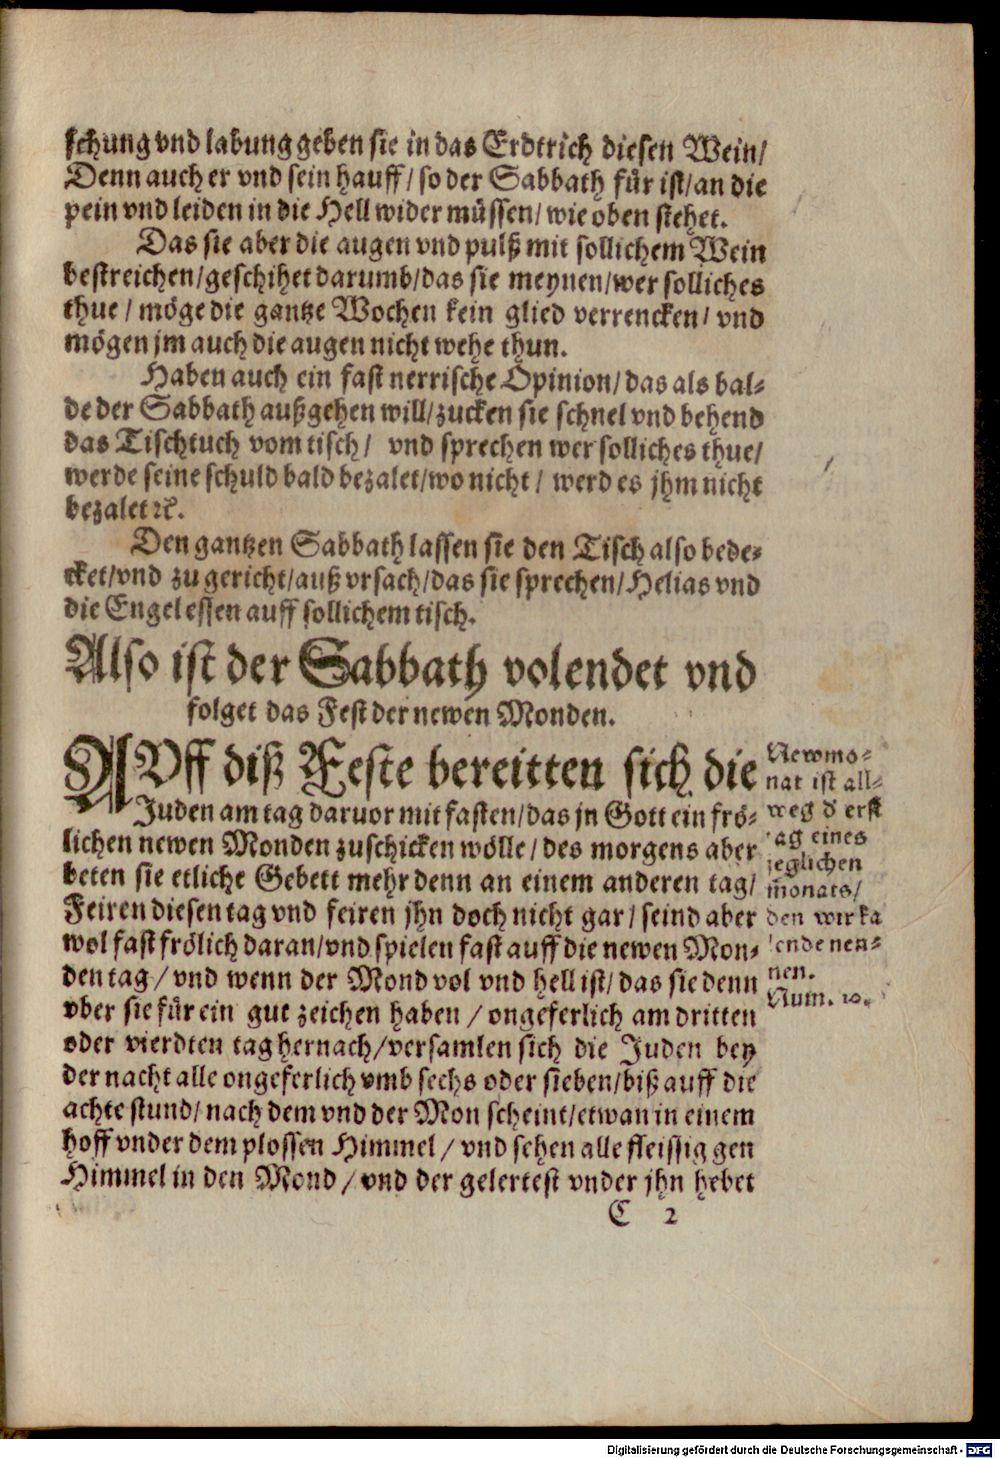 schung vnd labung geben sie in das Erdtrich diesen Wein/
Denn auch er vnd sein hauff/ so der Sabbath für ist/ an die
pein vnd leiden in die Hell wider müssen/ wie oben stehet.
Das sie aber die augen vnd pulß mit sollichem Wein
bestreichen/ geschihet darumb/ das sie meynen/ wer solliches
thue/ möge die gantze Wochen kein glied verrencken/ vnd
mögen jm auch die augen nicht wehe thun.
Haben auch ein fast nerrische Opinion/ das als bal-
de der Sabbath außgehen will/ zucken sie schnel vnd behend
das Tischtuch vom tisch/ vnd sprechen wer solliches thue/
werde seine schuld bald bezalet/ wo nicht/ werd es jhm nicht
bezalet ꝛc.
Den gantzen Sabbath lassen sie den Tisch also bede-
cket/ vnd zu gericht/ auß vrsach/ das sie sprechen/ Helias vnd
die Engel essen auff sollichem tisch.
Also ist der Sabbath volendet vnd
folget das Fest der newen Monden.
AVff diß Feste bereitten sich die
Juden am tag daruor mit fasten/ das jn Gott ein frö-
lichen newen Monden zuschicken wölle/ des morgens aber
beten sie etliche Gebett mehr denn an einem anderen tag/
Feiren diesen tag vnd feiren jhn doch nicht gar/ seind aber
wol fast frölich daran/ vnd spielen fast auff die newen Mon-
den tag/ vnd wenn der Mond vol vnd hell ist/ das sie denn
vber sie für ein gut zeichen haben/ ongeferlich am dritten
oder vierdten tag hernach/ versamlen sich die Juden bey
der nacht alle ongeferlich vmb sechs oder sieben/ biß auff die
achte stund/ nach dem vnd der Mon scheint/ etwan in einem
hoff vnder dem plossen Himmel/ vnd sehen alle fleissig gen
Himmel in den Mond/ vnd der gelertest vnder jhn hebet
C 2
Newmo-
nat ist all-
weg d erst
tag eines
jeglichen
monats/
den wir ka
lende nen-
nen.
Num. 10.
Digitalisierung gefördert durch die Deutsche Forschungsgemeinschaft - DFG